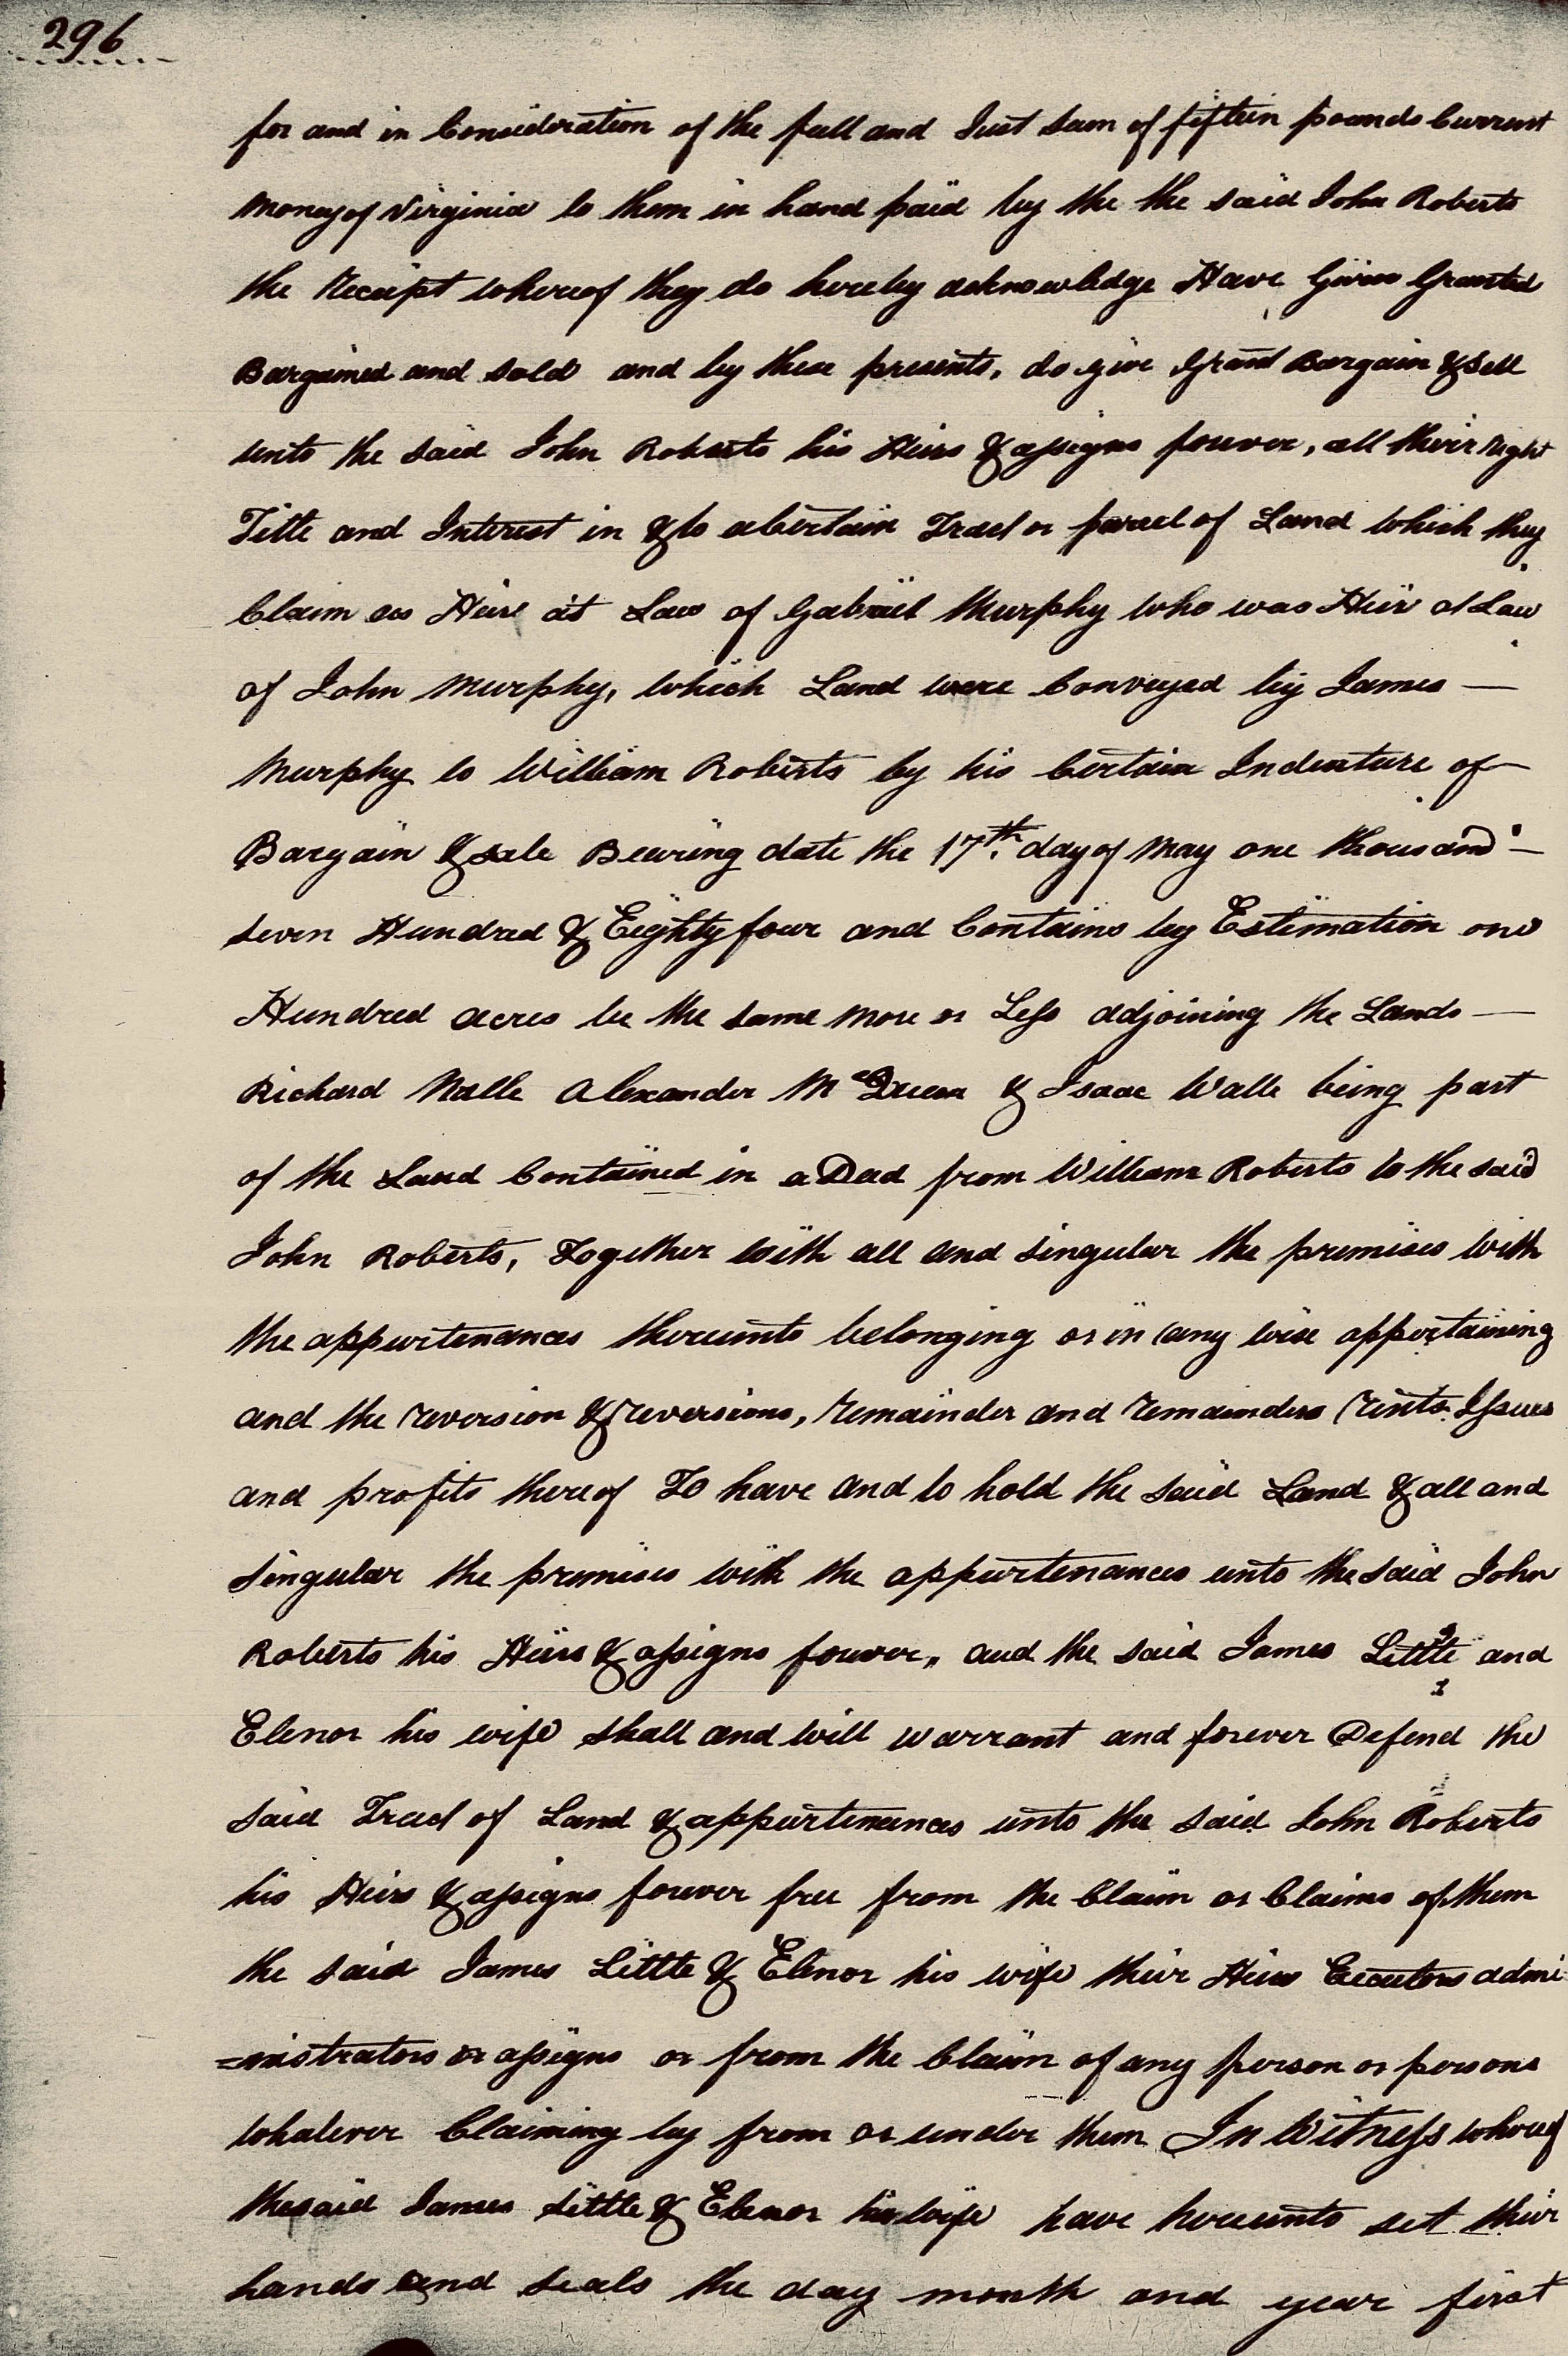 296
for and in Consideration of the full and Just Sum of fifteen pounds Current
Money of Virginia to them in hand paid by the the said John Roberts
the Receipt whereof they do hereby acknowledge Have Given Granted
Bargained and sold and by these presents, do give Grant Bargain & Sell
unto the said John Roberts his Heirs & assigns forever, all their Right
Title and Interest in & to a Certain Tract or parcel of Land which they
Claim as Heirs at Law of Gabriel Murphy who was Heir at Law
of John Murphy, which Land were Conveyed by James —
Murphy to William Roberts by his Certain Indenture of —
Bargain & sale Bearing date the 17th day of May one thousand —
seven Hundred & Eighty four and Contains by Estimation one
Hundred acres be the same more or Less adjoining the Lands —
Richard Nalle Alexander McQueen & Isaac Walle being part
of the Land Contained in a Deed from William Roberts to the said
John Roberts, Together with all and singular the premises with
the appurtenances thereunto belonging or in any wise appertaining
and the reversion & reversions, remainder and remainders rents Issues
and profits thereof To have and to hold the said Land & all and
singular the premises with the appurtenances unto the said John
Roberts his Heirs & assigns forever, and the said James Little and
Elenor his wife shall and will warrant and forever Defend the
said Tract of Land & appurtenances unto the said John Roberts
his Heirs & assigns forever free from the Claim or Claims of them
the said James Little & Elenor his wife their Heirs Executors admi
=nistrators or assigns or from the Claim of any person or persons
whatever Claiming by from or under them In Witness whereof
the said James Little & Elenor his wife have hereunto set their
hands and seals the day month and year first